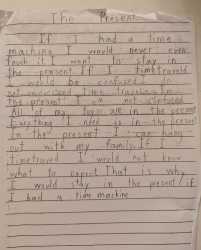 The Present
If I had a time
machine I would never even
touch it I want to stay in
the present If I timetraveled
I would be confused I
not time travel In
the present I am not confused
All of my toys are in the present
Everything I need is in the present
In the present I can hang
out with my family If I
timetraved I would not know
what to expect That is why
I would stay in the present if
I had a time machine